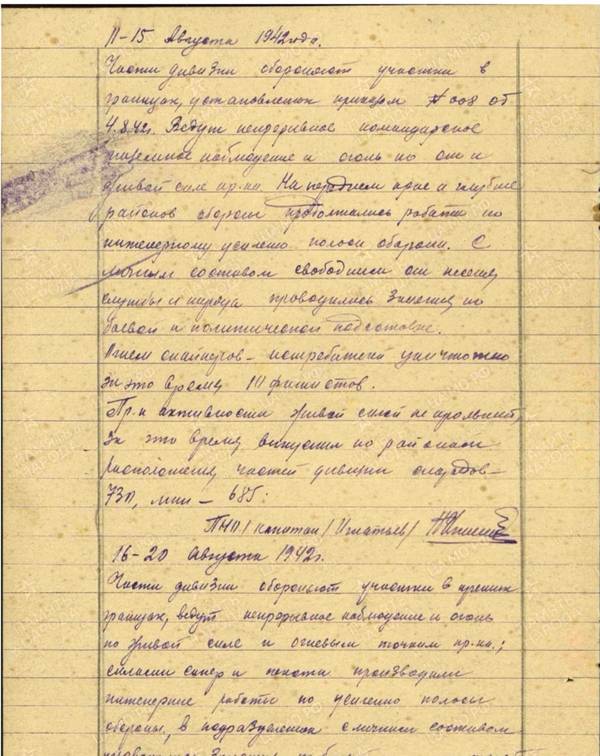 11-15 Августа 1942 года.
Части дивизии обороняют участки в
границах, установленных приказом № 008 от
4.8.42г. Ведут непрерывное командирское
наземное наблюдение и огонь по от и
живой силе пр-ка. На переднем крае и глубине
районов обороны продолжались работы по
инженерному усилению полосы обороны. С
личным составом свободным от несения
службы и наряда проводились занятия по
боевой и политической подготовке.
Огнем снайперов - истребителей уничтожено
за это время 111 фашистов.
Пр-к активности живой силой не проявлял,
за это время выпустил по районам
расположения частей дивизии снарядов -
730, мин - 685:
ПНО1 /капитан/ Игнатьев/
16-20 Августа 1942г.
Части дивизии обороняют участки в прежних
границах, ведут непрерывное наблюдение и огонь
по живой силе и огневым точкам пр-ка.;
силами сапер и пехоты производили
инженерные работы по усилению полосы
обороны, в подразделениях с личным составом